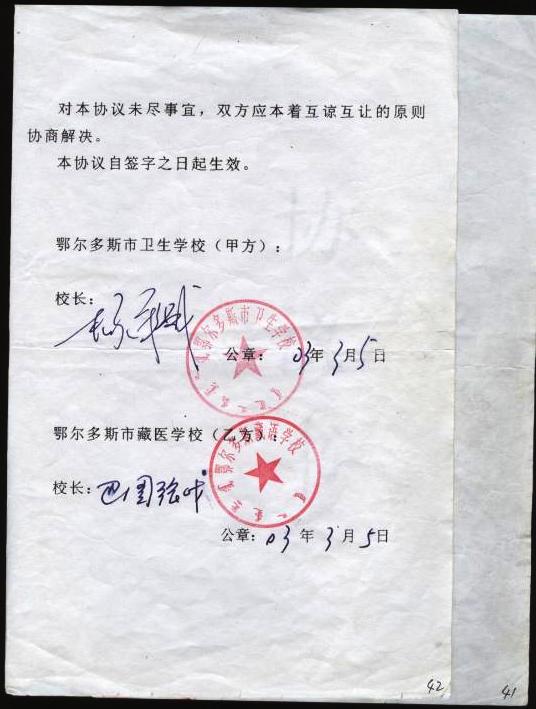 对本协议未尽事宜，双方应本着互谅互让的原则
协商解决。
本协议自签字之日起生效。
鄂尔多斯市卫生学校（甲方）：
校长：
鄂尔多斯市卫生学校
公章： 03年3月5日
鄂尔多斯市藏医学校（乙方）：
校长：
鄂尔多斯藏语学校
公章：03年3月5日
42
41